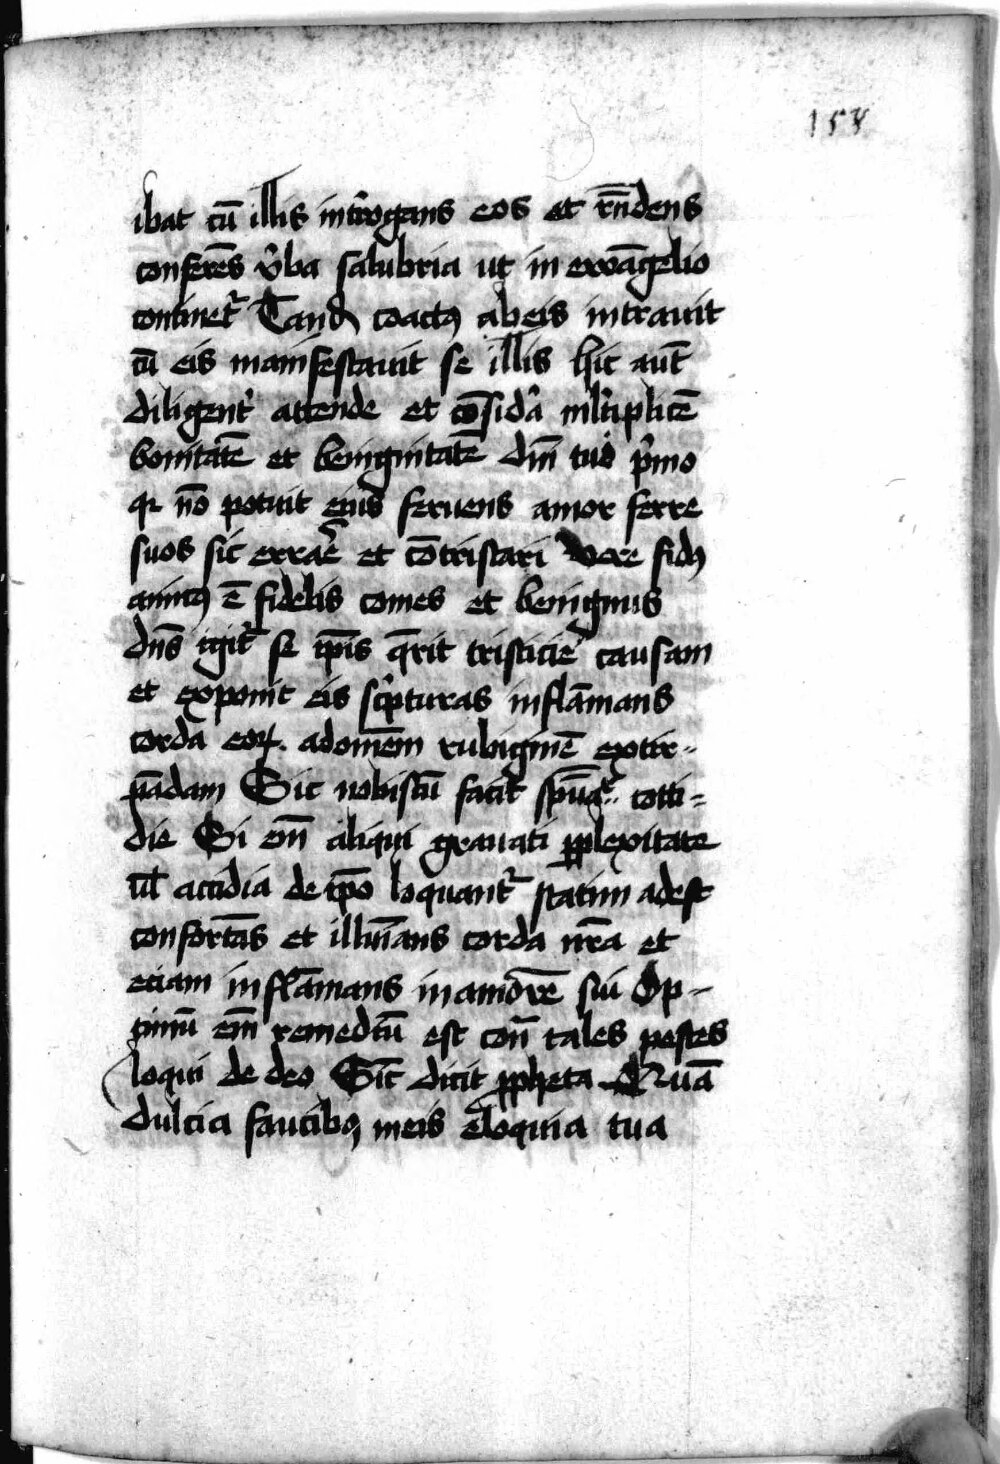 158
ibat cū illis int̄rogans eos et rn̄dens
conferēs v̄ba salubria ut in ewāgelio
continet᷑ Tandē coactꝰ ab eis intrauit
cū eis manifestauit se illis hic aūt
diligent̓ attende et cōsid̓a ml̓tiplicē
bonitatē et benignitatē dnī tui p̓mo
qꝛ nō potuit eius feruens amor ferre
suos sic erraē et cōtristari vere fidꝰ
amicꝰ ē fidelis comes et benignus
dn̄s igit᷑ se ip̄is q̄rit tristicie causam
et exponit eis sc̓pturas inflāmans
corda eoꝝ. ad om̄em rubiginē extir-
pādam Sic nobiscū facit sp̄ual̓r cotti=
die Si em̄ aliqui grauati ꝑplexitate
ul̄ accidia de ip̄o loquant᷑ statim adest
confortās et illuīans corda nr̄a et
etiam inflāmans in amorē sui Op-
timū em̄ remediū est con̄ tales pestes
loqui de deo Sic̄ dicit ꝓpheta Quā
dulcia faucibꝰ meis eloquia tua